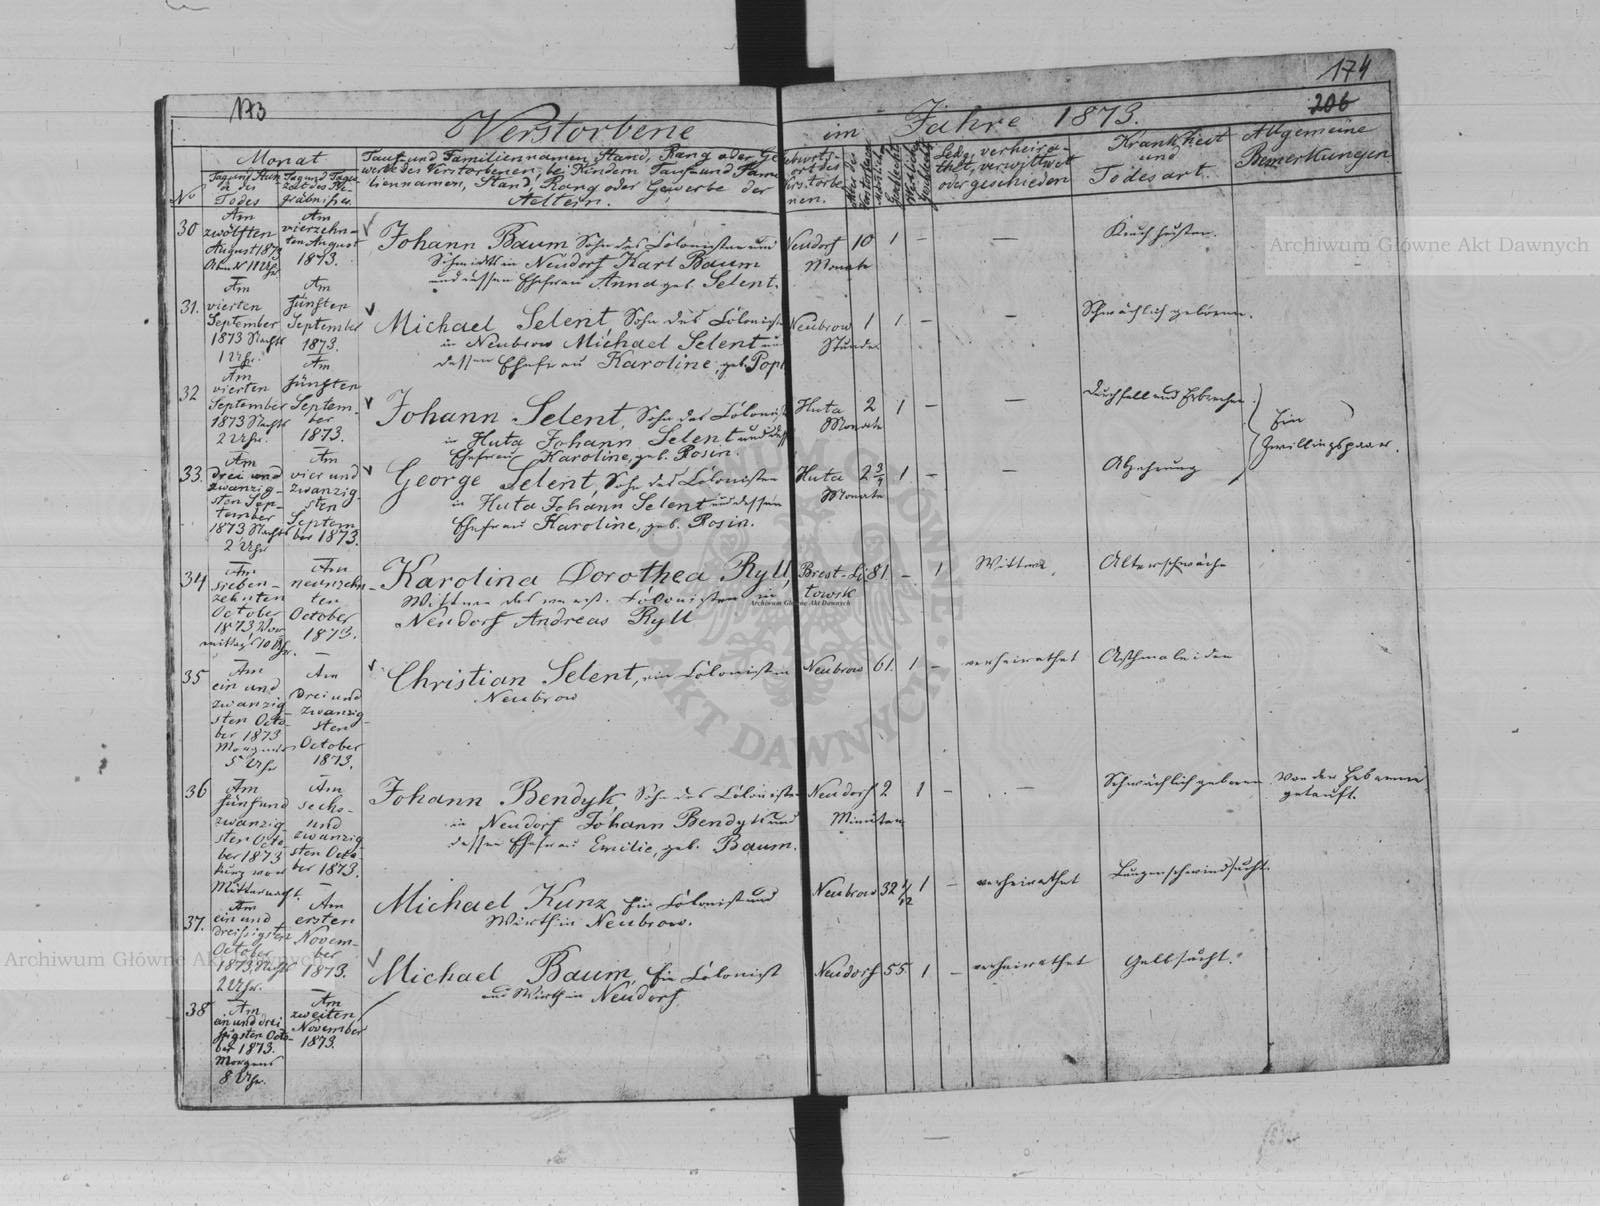 173
174
206
Verstorbene im Jahre 1873.
No
Monat
Tag und Stun
de des
Todes
Tag und Tages
zeit des Be-
gräbnisses.
Tauf- und Familiennamen, Stand, Rang oder Ge-
werbe des Verstorbenen, bei Kindern Tauf- und Fami-
liennamen, Stand, Rang oder Gewerbe der
Aeltern.
Geburts-
ort des
Verstorbe
nen.
Alter des
Verstorbenen
Männlich
Geschlecht
Weiblich
Geschlecht
Ledig, verheira-
thet, verwittwet
oder geschieden
Krankheit
und
Todesart.
Allgemeine
Bemerkungen
30
Am
zwölften
August 1873
Abends 11 Uhr
Am
vierzehn-
ten August
1873.
Johann Baum Sohn des Colonisten und
Schmidts in Neudorf Karl Baum
und dessen Ehefrau Anna geb. Selent.
Neudorf 10 1 – —
Monate
Keuchhusten.
31.
Am
vierten
September
1873 Nachts
1 Uhr.
Am
fünften
September
1873.
Michael Selent, Sohn des Colonisten
in Neubrow Michael Selent und
dessen Ehefrau Karoline, geb. Popi
Neubrow 1 1 – —
Stunde.
Schwächlich geboren.
32
Am
vierten
September
1873 Nachts
2 Uhr.
Am
fünften
Septem-
ber
1873.
Johann Selent, Sohn des Colonist
in Huta Johann Selent und dess
Ehefrau Karoline, geb. Rosin.
Huta 2 1 – —
Monate
Durchfall und Erbrechen.
Ein
Zwillingspaar.
33.
Am
drei und
zwanzig-
sten Sep-
tember
1873 Nachts
2 Uhr
Am
vier und
zwanzig-
sten
Septem
ber 1873.
George Selent, Sohn des Colonisten
in Huta Johann Selent und dessen
Ehefrau Karoline, geb. Rosin.
Huta 2 3/4 1 – —
Monate
Abzehrung
34
Am
sieben-
zehnten
October
1873, Vor
mittags 10 Uhr.
Am
neunzehn-
ten
October
1873.
Karolina Dorothea Ryll,
Wittwe des verst. Colonisten in
Neudorf Andreas Ryll
Brest-Li
towsk
81. – 1
Wittwe,
Alterschwäche
35
Am
ein und
zwanzig-
sten Octo-
ber 1873
Morgends
5 Uhr
Am
Drei und
zwanzig-
sten
October
1873.
Christian Selent, ein Colonist in
Neubrow
Neubrow 61. 1 – verheirathet
Asthmaleiden
36
Am
fünf und
zwanzig-
sten Octo-
ber 1873
kurz vor
Mitternacht.
Am
sechs-
und
zwanzig-
sten Octo-
ber 1873.
Johann Bendyk, Sohn des Colonisten
in Neudorf Johann Bendyk und
dessen Ehefrau Emilie, geb. Baum.
Neudorf 2 1 – —
Minuten
Schwächlich geboren
Von der Hebamme
getauft.
37.
Am
ein und
dreissigsten
October
1873, Nachts
2 Uhr.
Am
ersten
Novem-
ber
1873.
Michael Kunz ein Colonist und
Wirth in Neubrow.
Neubrow 32 1/12 1 – verheirathet
Lungenschwindsucht.
38
Am
ein und drei
ssigsten Octo-
ber 1873.
Morgens
8 Uhr.
Am
zweiten
November
1873.
Michael Baum, Ein Colonist
und Wirth in Neudorf.
Neudorf 55. 1 – verheirathet
Gelbsucht.
Archiwum Główne Akt Dawnych
Archiwum Główne Akt Dawnych
Archiwum Główne Akt Dawnych
ARCHIWUM GŁÓWNE
· AKT DAWNYCH ·